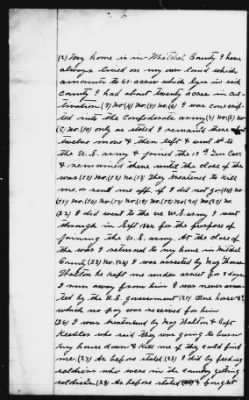 (2) My home is in Mitchel County I have
always lived on my own land which
amounts to 65 acres which lyes in said
county I had about twenty acres in cul-
tivation (3) No (4) No (5) No (6) I was conscrip-
ted into the Confederate army (7) No (8) No
(9) No (10) only as stated I remained there
twelve mos & then left & went to
the U.S. army & joined the 13 Tenn Cav
& remained there until the close of the
war (11) No (12) No (13) They threatened to kill
me or sent me off if I did not go (14) No
(15) No (16) No (17) No (18) No (19) No (20) No (21) No
(22) I did went to the U.S. army I went
through in Sept 1864 for the purpose of
joining the U.S. army. At the close of
the war I returned to my home in Mitchel
County (23) No (24) I was arrested by Maj
he kept me under arrest for 3 days
I run away from him I was never arres-
ted by the U.S. government (25) One horse &
which no pay was received for him
(26) I was threatened by Maj & Capt
who said they was going to burn
my house down & kill me if they could find
me. (27) As before stated (28) I did by feeding
soldiers who were in the country getting
soldiers (29) As before stated I fought